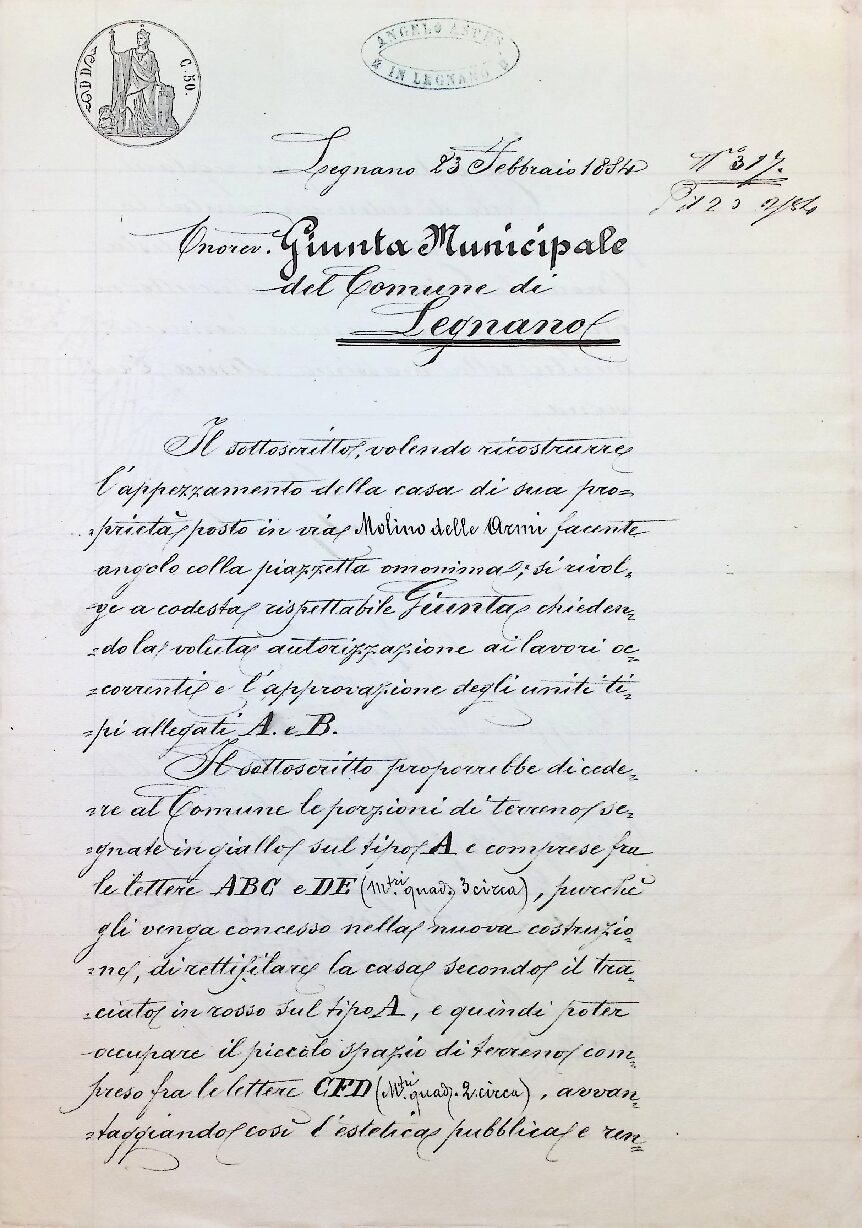 C. 50.
ANGELO
IN LEGNANO
Legnano 23 Febbraio 1884
N.° 317.
Onorev.e Giunta Municipale
del Comune di
Legnano
Il sottoscritto, volendo ricostrurre
l'appezzamento della casa di sua pro=
=prietà posto in via Molino delle Armi facente
angolo colla piazzetta omonima, si rivol=
ge a codesta rispettabile Giunta chieden=
=do la voluta autorizzazione ai lavori oc=
=correnti e l'approvazione degli uniti ti=
=pi allegati A. e B.
Il sottoscritto proporrebbe di cede=
=re al Comune le porzioni di terreno se=
=gnate in giallo sul tipo A e comprese fra
le lettere ABC e DE (M.tri quad. 3 circa), purchè
gli venga concesso nella nuova costruzio=
=ne, di rettifilare la casa secondo il tra=
=ciato in rosso sul tipo A, e quindi poter
occupare il piccolo spazio di terreno com=
preso fra le lettere CFD (M.tri quad. 2 circa), avvan=
=taggiando così l'estetica pubblica e ren=